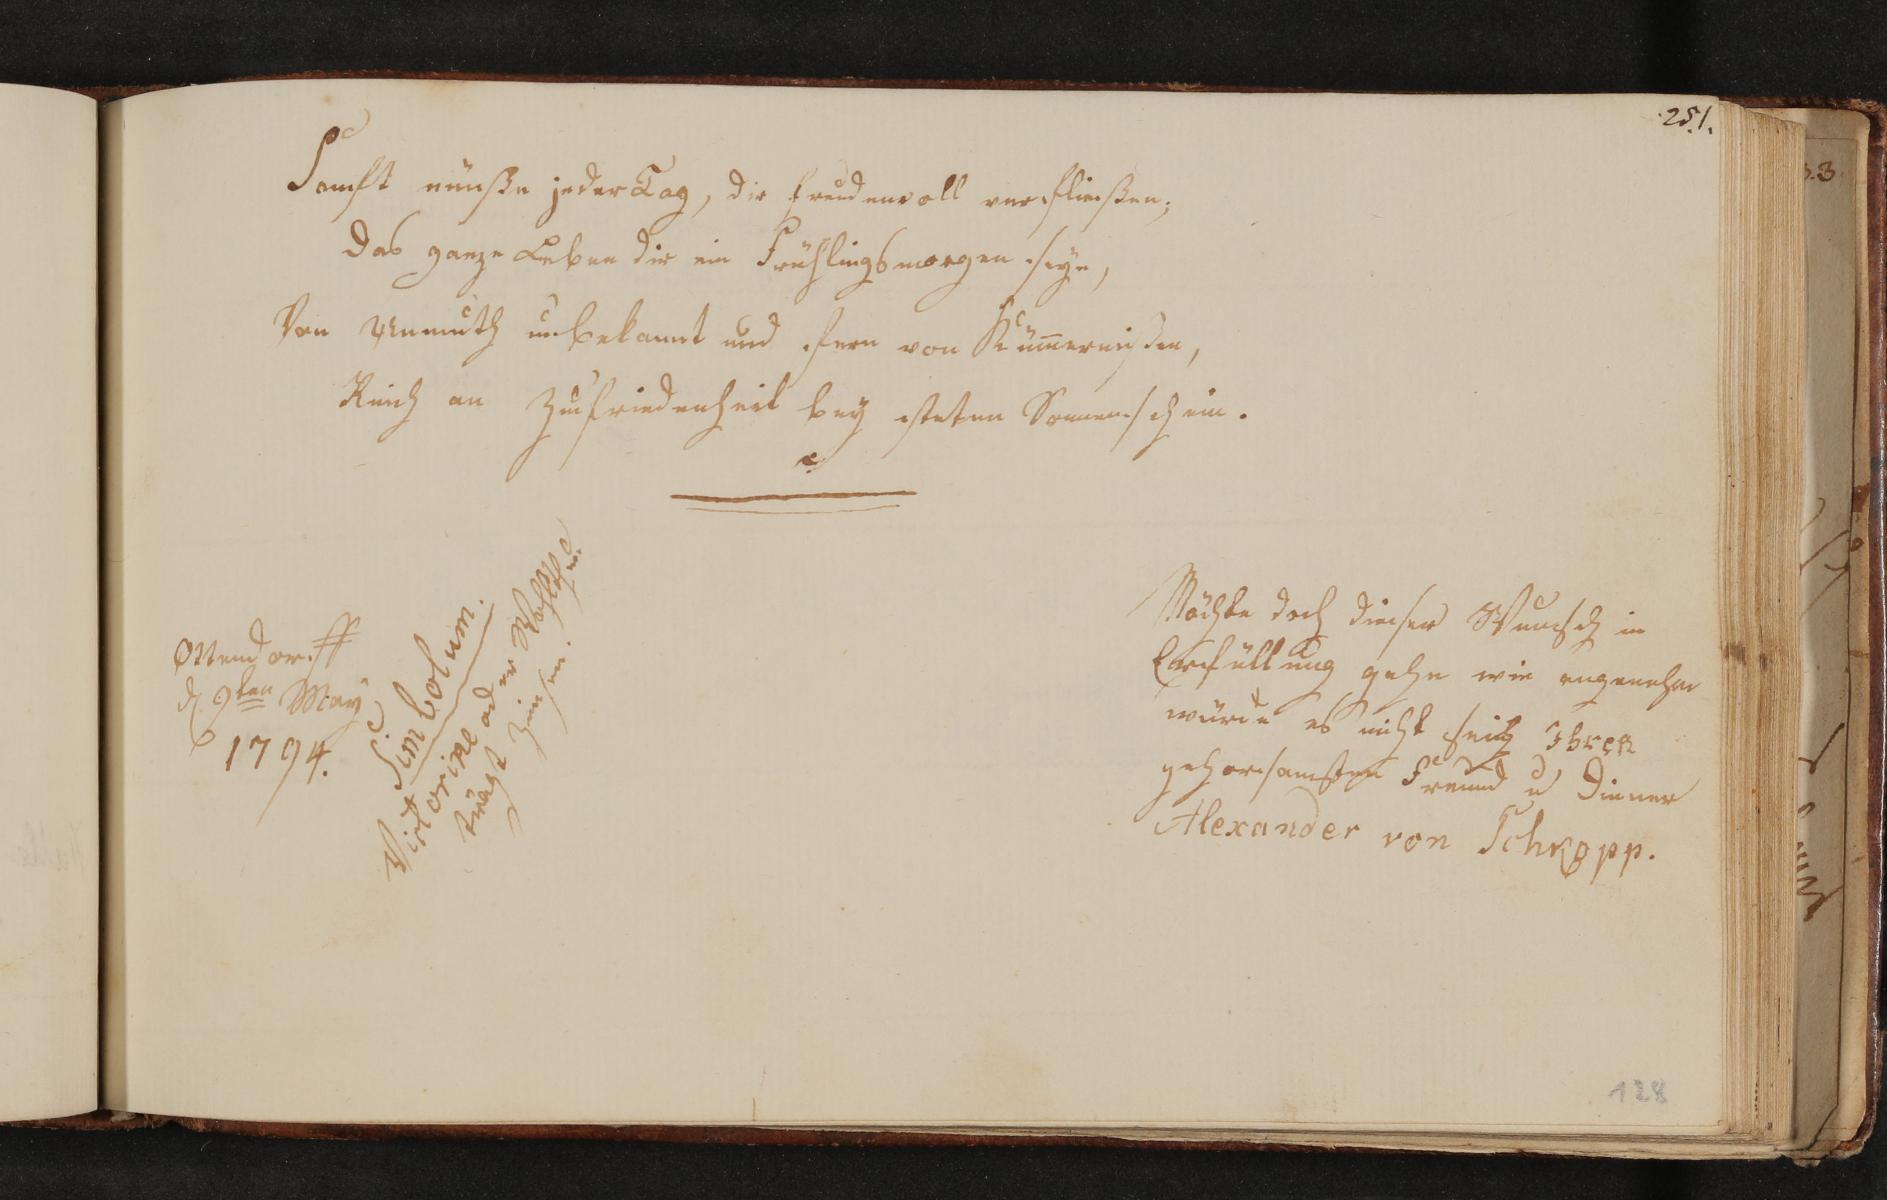 251.
Sanft müße jeder Tag, dir freudenvoll verfließen;
Das ganze Leben dir ein Frühlingsmorgen seyn,
Von Unmuth unbekannt und fern von Kum̅ernißen,
Reich an Zufriedenheit bey steten Sonnenschein.
Ottendorff
d. 9ten May
1794.
Simbolum.
oder
trägt Zinsen.
Möchte doch dieser Wunsch in
Erfüllung gehn wie angenehm
würde es nicht seyn Ihren
gehorsamsten Freund u Diener
Alexander von Schkopp.
128